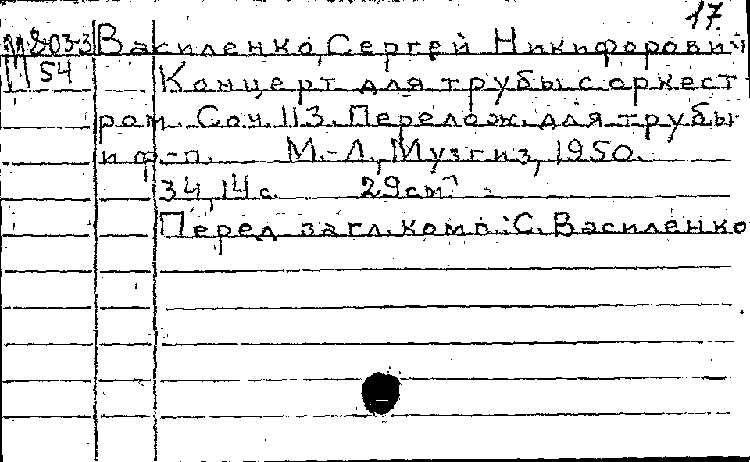 17
803-3 Василенко, Сергей Никифорович
54 Концерт для трубы с оркест
ром. Соч. 113. Перелож. для трубы
и ф-п. М.-Л., Музгиз, 1950.
34, 14 с. 29 см.
Перед загл. комп.: С. Василенко